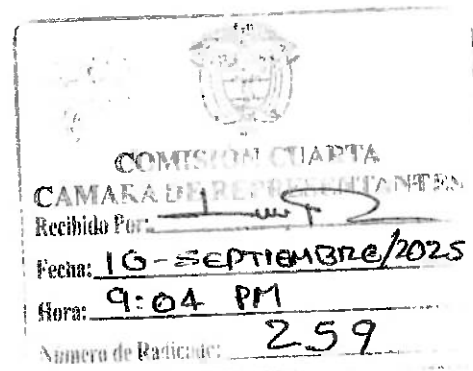 COMISION CUARTA
CAMARA DE REPRESENTANTES
Recibido Por:
Fecha: 16-SEPTIEMBRE/2025
Hora: 9:04 PM
Número de Radicado: 259